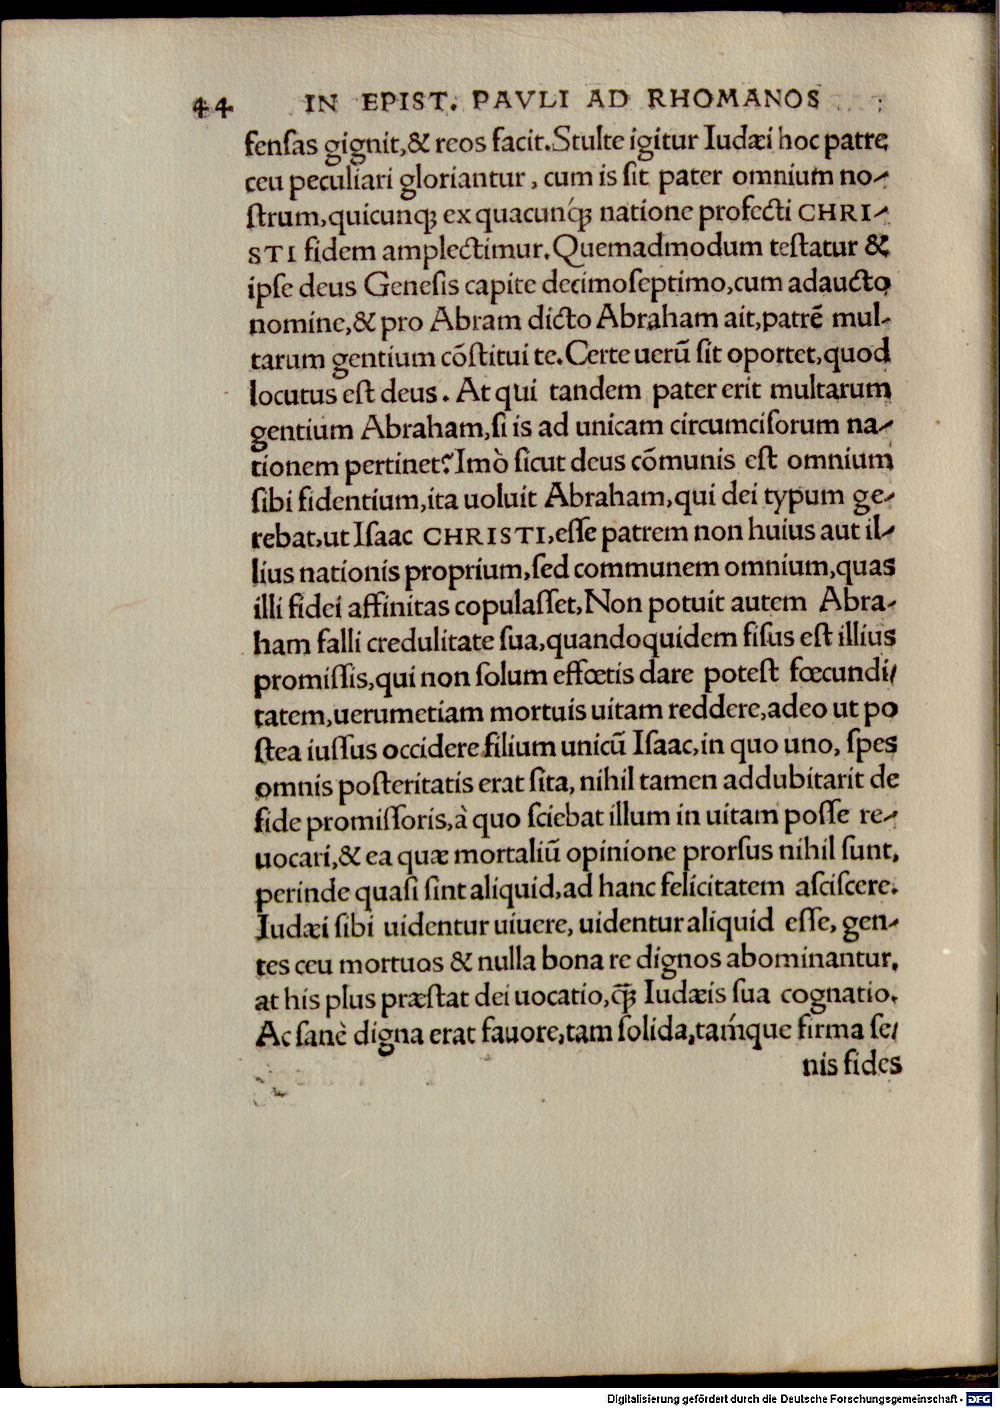 44 IN EPIST. PAVLI AD RHOMANOS
fenſas gignit,& reos facit.Stulte igitur Iudæi hoc patre
ceu peculiari gloriantur, cum is ſit pater omnium no-
ſtrum,quicunqꝫ ex quacunq́ꝫ natione profecti CHRI-
STI fidem amplectimur.Quemadmodum teſtatur &
ipſe deus Geneſis capite decimoſeptimo,cum adaucto
nomine,& pro Abram dicto Abraham ait,patrē mul-
tarum gentium cōſtitui te.Certe uerū ſit oportet,quod
locutus eſt deus. At qui tandem pater erit multarum
gentium Abraham,ſi is ad unicam circumciſorum na-
tionem pertinet?Imò ſicut deus cōmunis eſt omnium
ſibi fidentium,ita uoluit Abraham,qui dei typum ge-
rebat,ut Iſaac CHRISTI,eſſe patrem non huius aut il-
lius nationis proprium,ſed communem omnium,quas
illi fidei affinitas copulaſſet,Non potuit autem Abra-
ham falli credulitate ſua,quandoquidem fiſus eſt illius
promiſſis,qui non ſolum effœtis dare poteſt fœcundi/
tatem,uerumetiam mortuis uitam reddere,adeo ut po
ſtea iuſſus occidere filium unicū Iſaac,in quo uno, ſpes
omnis poſteritatis erat ſita, nihil tamen addubitarit de
fide promiſſoris,à quo ſciebat illum in uitam poſſe re-
uocari,& ea quæ mortaliū opinione prorſus nihil ſunt,
perinde quaſi ſint aliquid,ad hanc felicitatem aſciſcere.
Iudæi ſibi uidentur uiuere, uidentur aliquid eſſe, gen-
tes ceu mortuos & nulla bona re dignos abominantur,
at his plus præſtat dei uocatio,q̄ꝫ Iudæis ſua cognatio.
Ac ſanè digna erat fauore,tam ſolida,taḿque firma ſe/
nis fides
Digitalisierung gefördert durch die Deutsche Forschungsgemeinschaft - DFG